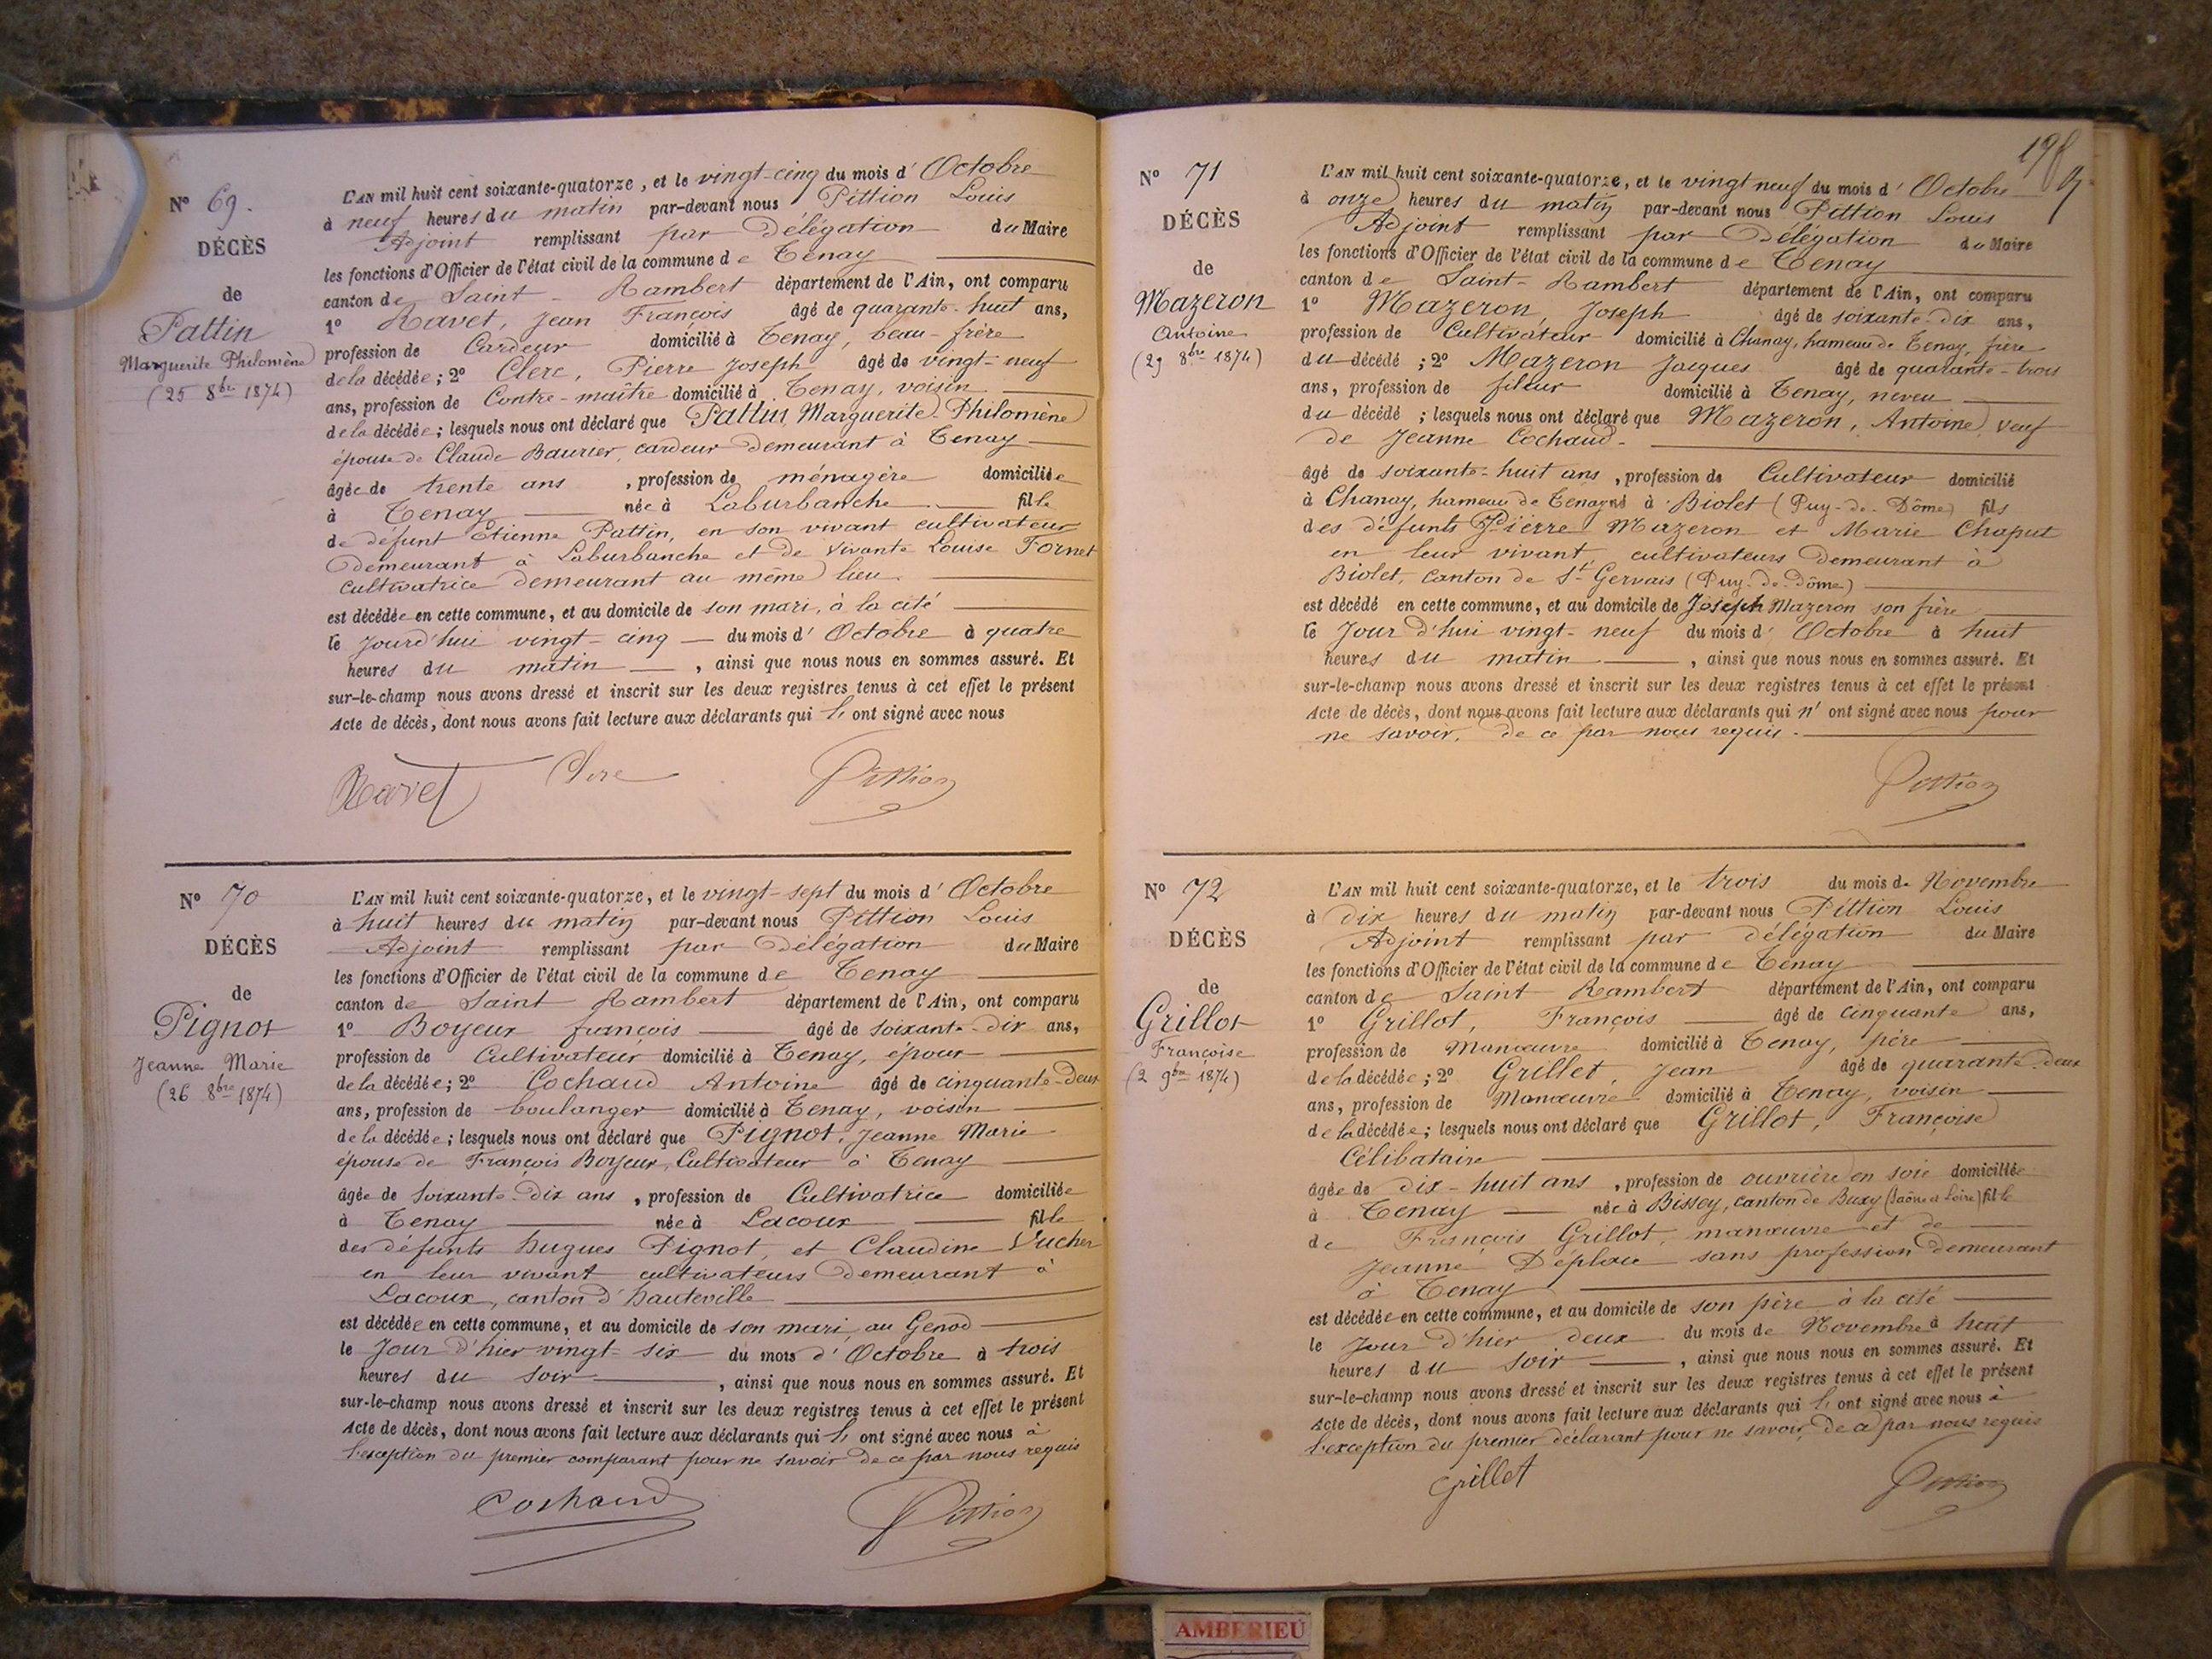 Nº 69.
DÉCÈS
de
Pattin
Marguerite Philomène
(25 8bre 1874)
L'AN mil huit cent soixante-quatorze, et le vingt-cinq du mois d'Octobre
à neuf heures du matin par-devant nous Pittion Louis
Adjoint remplissant par Délégation du Maire
les fonctions d'Officier de l'état civil de la commune de Tenay
canton de Saint-Rambert département de l'Ain, ont comparu
1º Ravet, Jean François âgé de quarante-huit ans,
profession de Cardeur domicilié à Tenay, beau-frère
de la décédée; 2º Clerc, Pierre Joseph âgé de vingt-neuf
ans, profession de Contre-maître domicilié à Tenay, voisin
de la décédée; lesquels nous ont déclaré que Pattin, Marguerite Philomène
épouse de Claude Baurier, cardeur demeurant à Tenay
âgée de trente ans, profession de ménagère domiciliée
à Tenay née à Laburbanche fille
de défunt Etienne Pattin, en son vivant cultivateur
demeurant à Laburbanche et de vivante Louise Tornet
cultivatrice demeurant au même lieu.
est décédée en cette commune, et au domicile de son mari, à la cité
le jourd'hui vingt-cinq du mois d'Octobre à quatre
heures du matin, ainsi que nous nous en sommes assuré. Et
sur-le-champ nous avons dressé et inscrit sur les deux registres tenus à cet effet le présent
Acte de décès, dont nous avons fait lecture aux déclarants qui l' ont signé avec nous
Ravet Clerc Pittion
Nº 70
DÉCÈS
de
Pignot
Jeanne Marie
(26 8bre 1874)
L'AN mil huit cent soixante-quatorze, et le vingt-sept du mois d'Octobre
à huit heures du matin par-devant nous Pittion Louis
Adjoint remplissant par Délégation du Maire
les fonctions d'Officier de l'état civil de la commune de Tenay
canton de Saint Rambert département de l'Ain, ont comparu
1º Boyeux françois âgé de soixante-dix ans,
profession de Cultivateur domicilié à Tenay, époux
de la décédée; 2º Cochaud Antoine âgé de cinquante-deux
ans, profession de boulanger domicilié à Tenay, voisin
de la décédée; lesquels nous ont déclaré que Pignot, Jeanne Marie
épouse de François Boyeux, Cultivateur à Tenay
âgée de soixante-dix ans, profession de Cultivatrice domiciliée
à Tenay née à Lacoux fille
des défunts hugues Pignot, et Claudine Vucher
en leur vivant cultivateurs demeurant à
Lacoux, canton d'hauteville
est décédée en cette commune, et au domicile de son mari au Genod
le Jour d'hier vingt-six du mois d'Octobre à trois
heures du soir, ainsi que nous nous en sommes assuré. Et
sur-le-champ nous avons dressé et inscrit sur les deux registres tenus à cet effet le présent
Acte de décès, dont nous avons fait lecture aux déclarants qui l' ont signé avec nous à
l'exception du premier comparant pour ne savoir de ce par nous requis
Cochaud Pittion
Nº 71
DÉCÈS
de
Mazeron
Antoine
(29 8bre 1874)
L'AN mil huit cent soixante-quatorze, et le vingt neuf du mois d'Octobre
à onze heures du matin par-devant nous Pittion Louis
Adjoint remplissant par Délégation du Maire
les fonctions d'Officier de l'état civil de la commune de Tenay
canton de Saint-Rambert département de l'Ain, ont comparu
1º Mazeron, Joseph âgé de soixante-dix ans,
profession de Cultivateur domicilié à Chanay, hameau de Tenay, frère
du décédé; 2º Mazeron Jacques âgé de quarante-trois
ans, profession de fileur domicilié à Tenay, neveu
du décédé; lesquels nous ont déclaré que Mazeron, Antoine, veuf
de Jeanne Cochaud.
âgé de soixante-huit ans, profession de Cultivateur domicilié
à Chanay, hameau de Tenay né à Biolet (Puy-de-Dôme) fils
des défunts Pierre Mazeron et Marie Chaput
en leur vivant cultivateurs demeurant à
Biolet, canton de St Gervais (Puy-de-Dôme)
est décédé en cette commune, et au domicile de Joseph Mazeron son frère
le Jour d'hui vingt-neuf du mois d'Octobre à huit
heures du matin, ainsi que nous nous en sommes assuré. Et
sur-le-champ nous avons dressé et inscrit sur les deux registres tenus à cet effet le présent
Acte de décès, dont nous avons fait lecture aux déclarants qui n' ont signé avec nous pour
ne savoir, de ce par nous requis.
Pittion
Nº 72
DÉCÈS
de
Grillot
Françoise
(2 9bre 1874)
L'AN mil huit cent soixante-quatorze, et le trois du mois de Novembre
à dix heures du matin par-devant nous Pittion Louis
Adjoint remplissant par délégation du Maire
les fonctions d'Officier de l'état civil de la commune de Tenay
canton de Saint-Rambert département de l'Ain, ont comparu
1º Grillot, François âgé de cinquante ans,
profession de Manœuvre domicilié à Tenay, père
de la décédée; 2º Grillet, Jean âgé de quarante-deux
ans, profession de Manœuvre domicilié à Tenay, voisin
de la décédée; lesquels nous ont déclaré que Grillot, Françoise
Célibataire
âgée de dix-huit ans, profession de ouvrière en soie domiciliée
à Tenay née à Bissey, canton de Buxy (Saône et Loire) fille
de François Grillot, manœuvre et de
Jeanne Déplace sans profession demeurant
à Tenay
est décédée en cette commune, et au domicile de son père à la cité
le Jour d'hier deux du mois de Novembre à huit
heures du soir, ainsi que nous nous en sommes assuré. Et
sur-le-champ nous avons dressé et inscrit sur les deux registres tenus à cet effet le présent
Acte de décès, dont nous avons fait lecture aux déclarants qui l' ont signé avec nous à
l'exception du premier déclarant pour ne savoir, de ce par nous requis
Grillet Pittion
AMBERIEU